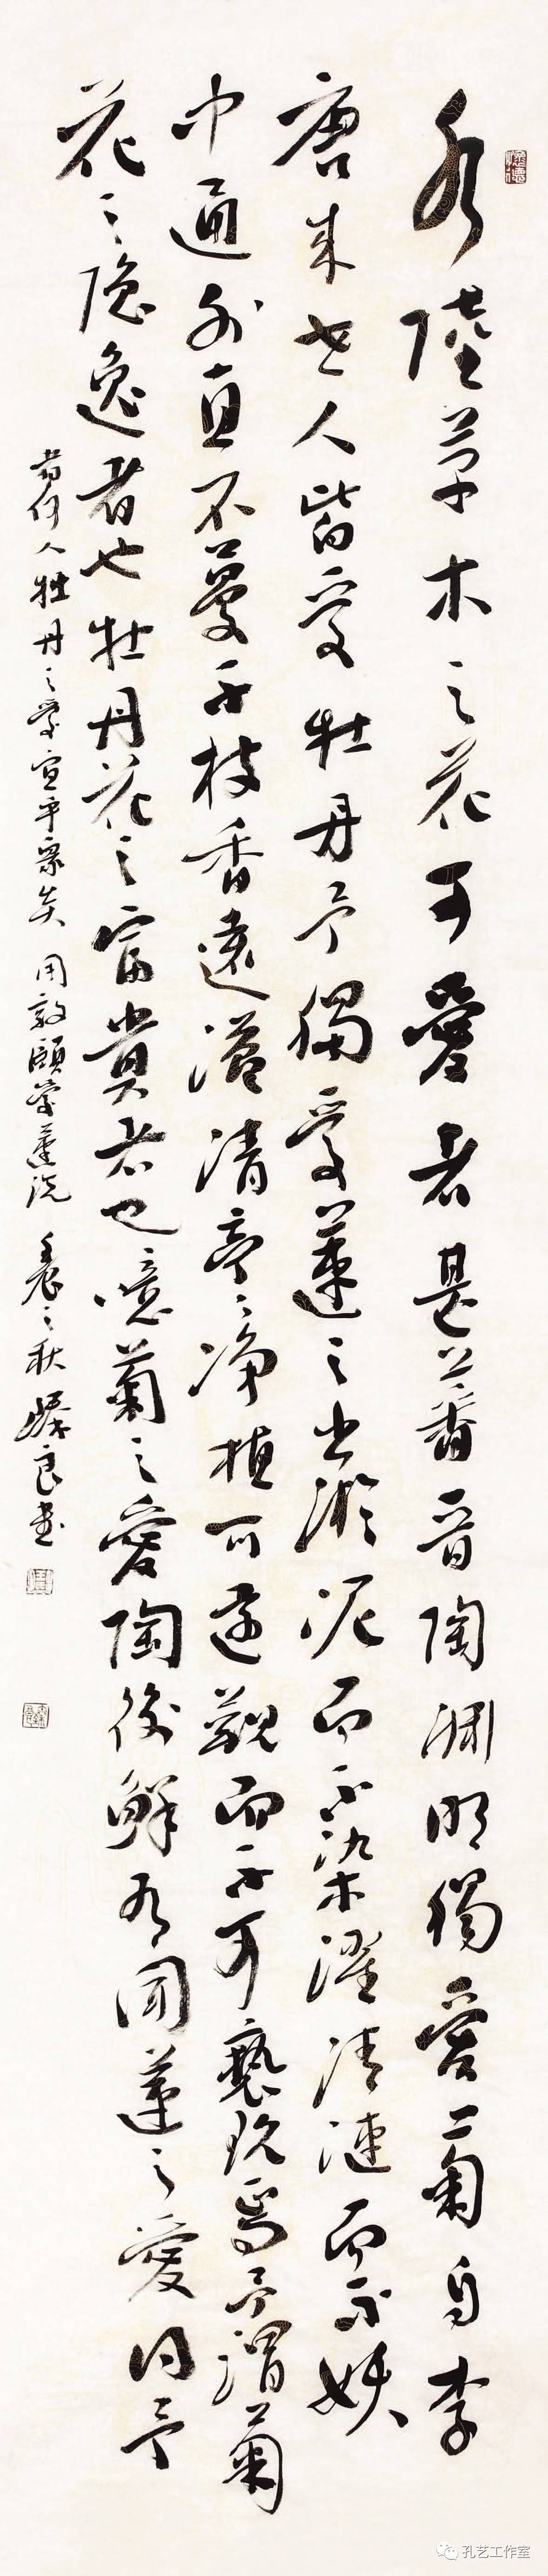 水陸草木之花可愛者甚蕃晋陶渊明獨愛菊自李
唐来世人皆愛牡丹予獨愛蓮之出淤泥而不染濯清漣而不妖
中通外直不蔓不枝香遠溢清亭〻净植可遠觀而不可褻玩焉予謂菊
花之隐逸者也牡丹花之富貴者也噫菊之愛陶後鮮有聞蓮之愛同予
者何人牡丹之愛宜乎衆矣 周敦頤愛蓮説 壬辰之秋 良書
孔艺工作室